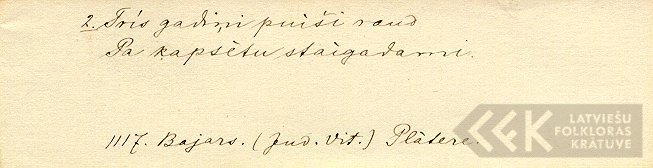 2. Trīs gadiņi puiši raud
Pa kapsētu staigadami.
1117. Bajars. (Jud. Vit.) Plātere.
LATVIEŠU
FOLKLORAS
KRĀTUVE